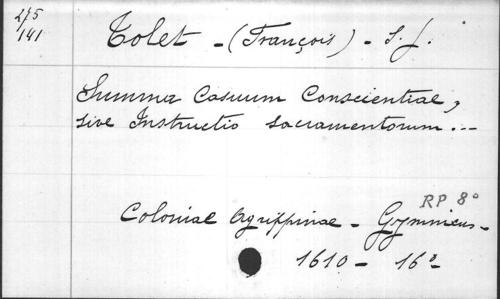 275
141
Tolet - (François) - S. J.
Summa Casuum Conscientiae,
sive Instructio sacramentorum...
RP 8°
Coloniae Agrippinae - Gymnicus -
1610 - 16°